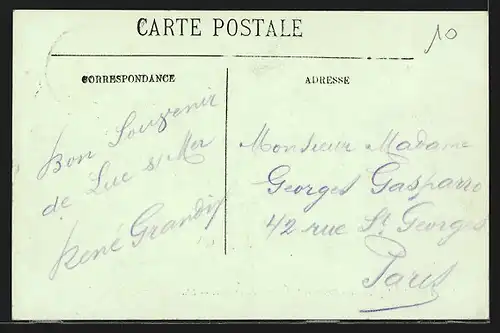 CARTE POSTALE
10
CORRESPONDANCE
Bon Souvenir
de Luc s/ Mer
René Grandif
ADRESSE
Monsieur Madame
Georges Gasparro
42 rue St Georges
Paris